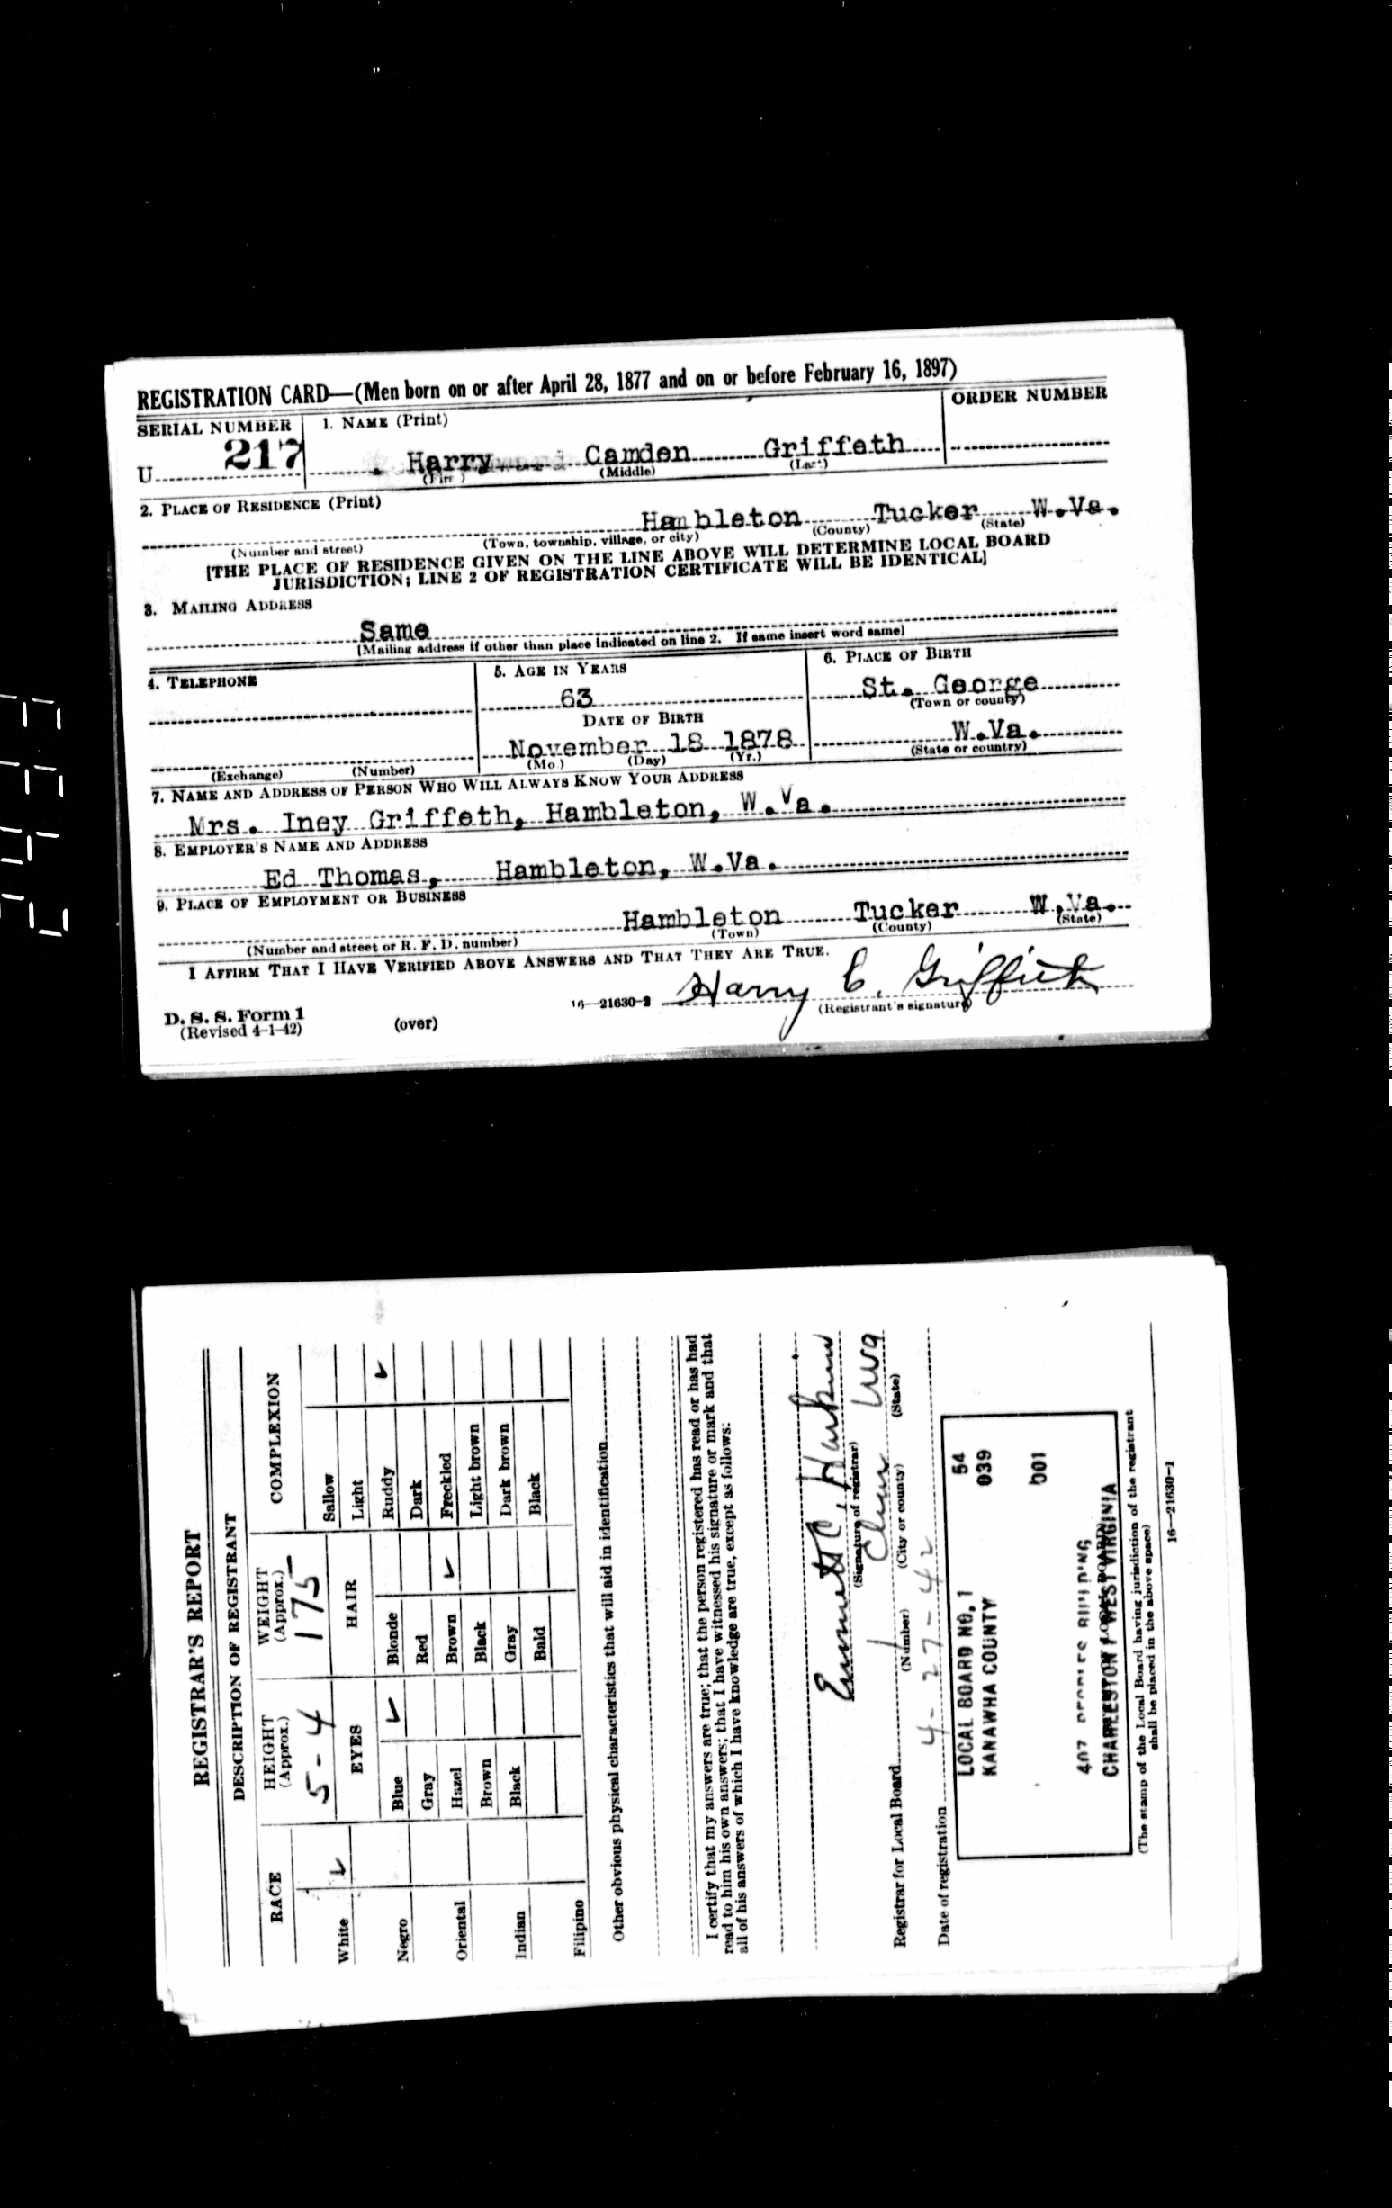 REGISTRATION CARD—(Men born on or after April 28, 1877 and on or before February 16, 1897)
SERIAL NUMBER 1. NAME (Print) ORDER NUMBER
U 217 Harry Camden Griffeth
(Middle)
2. PLACE OF RESIDENCE (Print)
Hambleton Tucker W.Va.
(Number and street) (Town, township, village, or city) (County) (State)
[THE PLACE OF RESIDENCE GIVEN ON THE LINE ABOVE WILL DETERMINE LOCAL BOARD
JURISDICTION; LINE 2 OF REGISTRATION CERTIFICATE WILL BE IDENTICAL]
3. MAILING ADDRESS
Same
[Mailing address if other than place indicated on line 2. If same insert word same]
4. TELEPHONE 5. AGE IN YEARS 6. PLACE OF BIRTH
63 St. George
(Town or county)
DATE OF BIRTH
November 18 1878 W.Va.
(Exchange) (Number) (Mo.) (Day) (Yr.) (State or country)
7. NAME AND ADDRESS OF PERSON WHO WILL ALWAYS KNOW YOUR ADDRESS
Mrs. Iney Griffeth, Hambleton, W.Va.
8. EMPLOYER'S NAME AND ADDRESS
Ed Thomas, Hambleton, W.Va.
9. PLACE OF EMPLOYMENT OR BUSINESS
Hambleton Tucker W.Va.
(Number and street or R. F. D. number) (Town) (County) (State)
I AFFIRM THAT I HAVE VERIFIED ABOVE ANSWERS AND THAT THEY ARE TRUE.
D. S. S. Form 1
(Revised 4-1-42) (over) 16—21630-2 Harry C. Griffith
(Registrant's signature)
REGISTRAR'S REPORT
DESCRIPTION OF REGISTRANT
RACE HEIGHT (Approx.) WEIGHT (Approx.) COMPLEXION
5-4 175
White ✓ EYES HAIR Sallow
Light
Blue ✓ Blonde Ruddy ✓
Negro Gray Red Dark
Hazel Brown ✓ Freckled
Oriental Brown Black Light brown
Black Gray Dark brown
Indian Bald Black
Filipino
Other obvious physical characteristics that will aid in identification
I certify that my answers are true; that the person registered has read or has had
read to him his own answers; that I have witnessed his signature or mark and that
all of his answers of which I have knowledge are true, except as follows:
Emmett C.
(Signature of registrar)
Registrar for Local Board 1
(Number) (City or county) (State)
Date of registration 4-27-42
LOCAL BOARD NO. 1 54
KANAWHA COUNTY 039
001
407 PEOPLES BUILDING
CHARLESTON WEST VIRGINIA
(The stamp of the Local Board having jurisdiction of the registrant
shall be placed in the above space)
16—21630-1